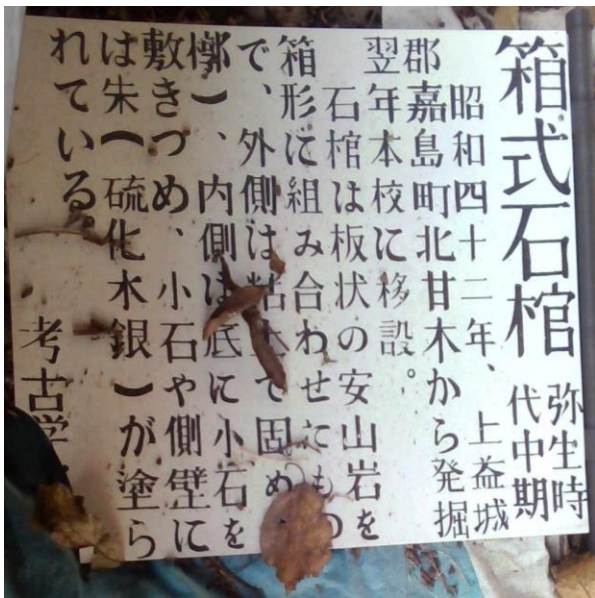 箱式石棺
弥生時
代中期
昭和四十二年、上益城
郡嘉島町北甘木から発掘
翌年本校に移設。
石棺は板状の安山岩を
箱形に組み合わせたもの
で、外側は粘土で固め
槨)、内側は底に小石を
敷きつめ、小石や側壁に
は朱(硫化水銀)が塗ら
れている。
考古学